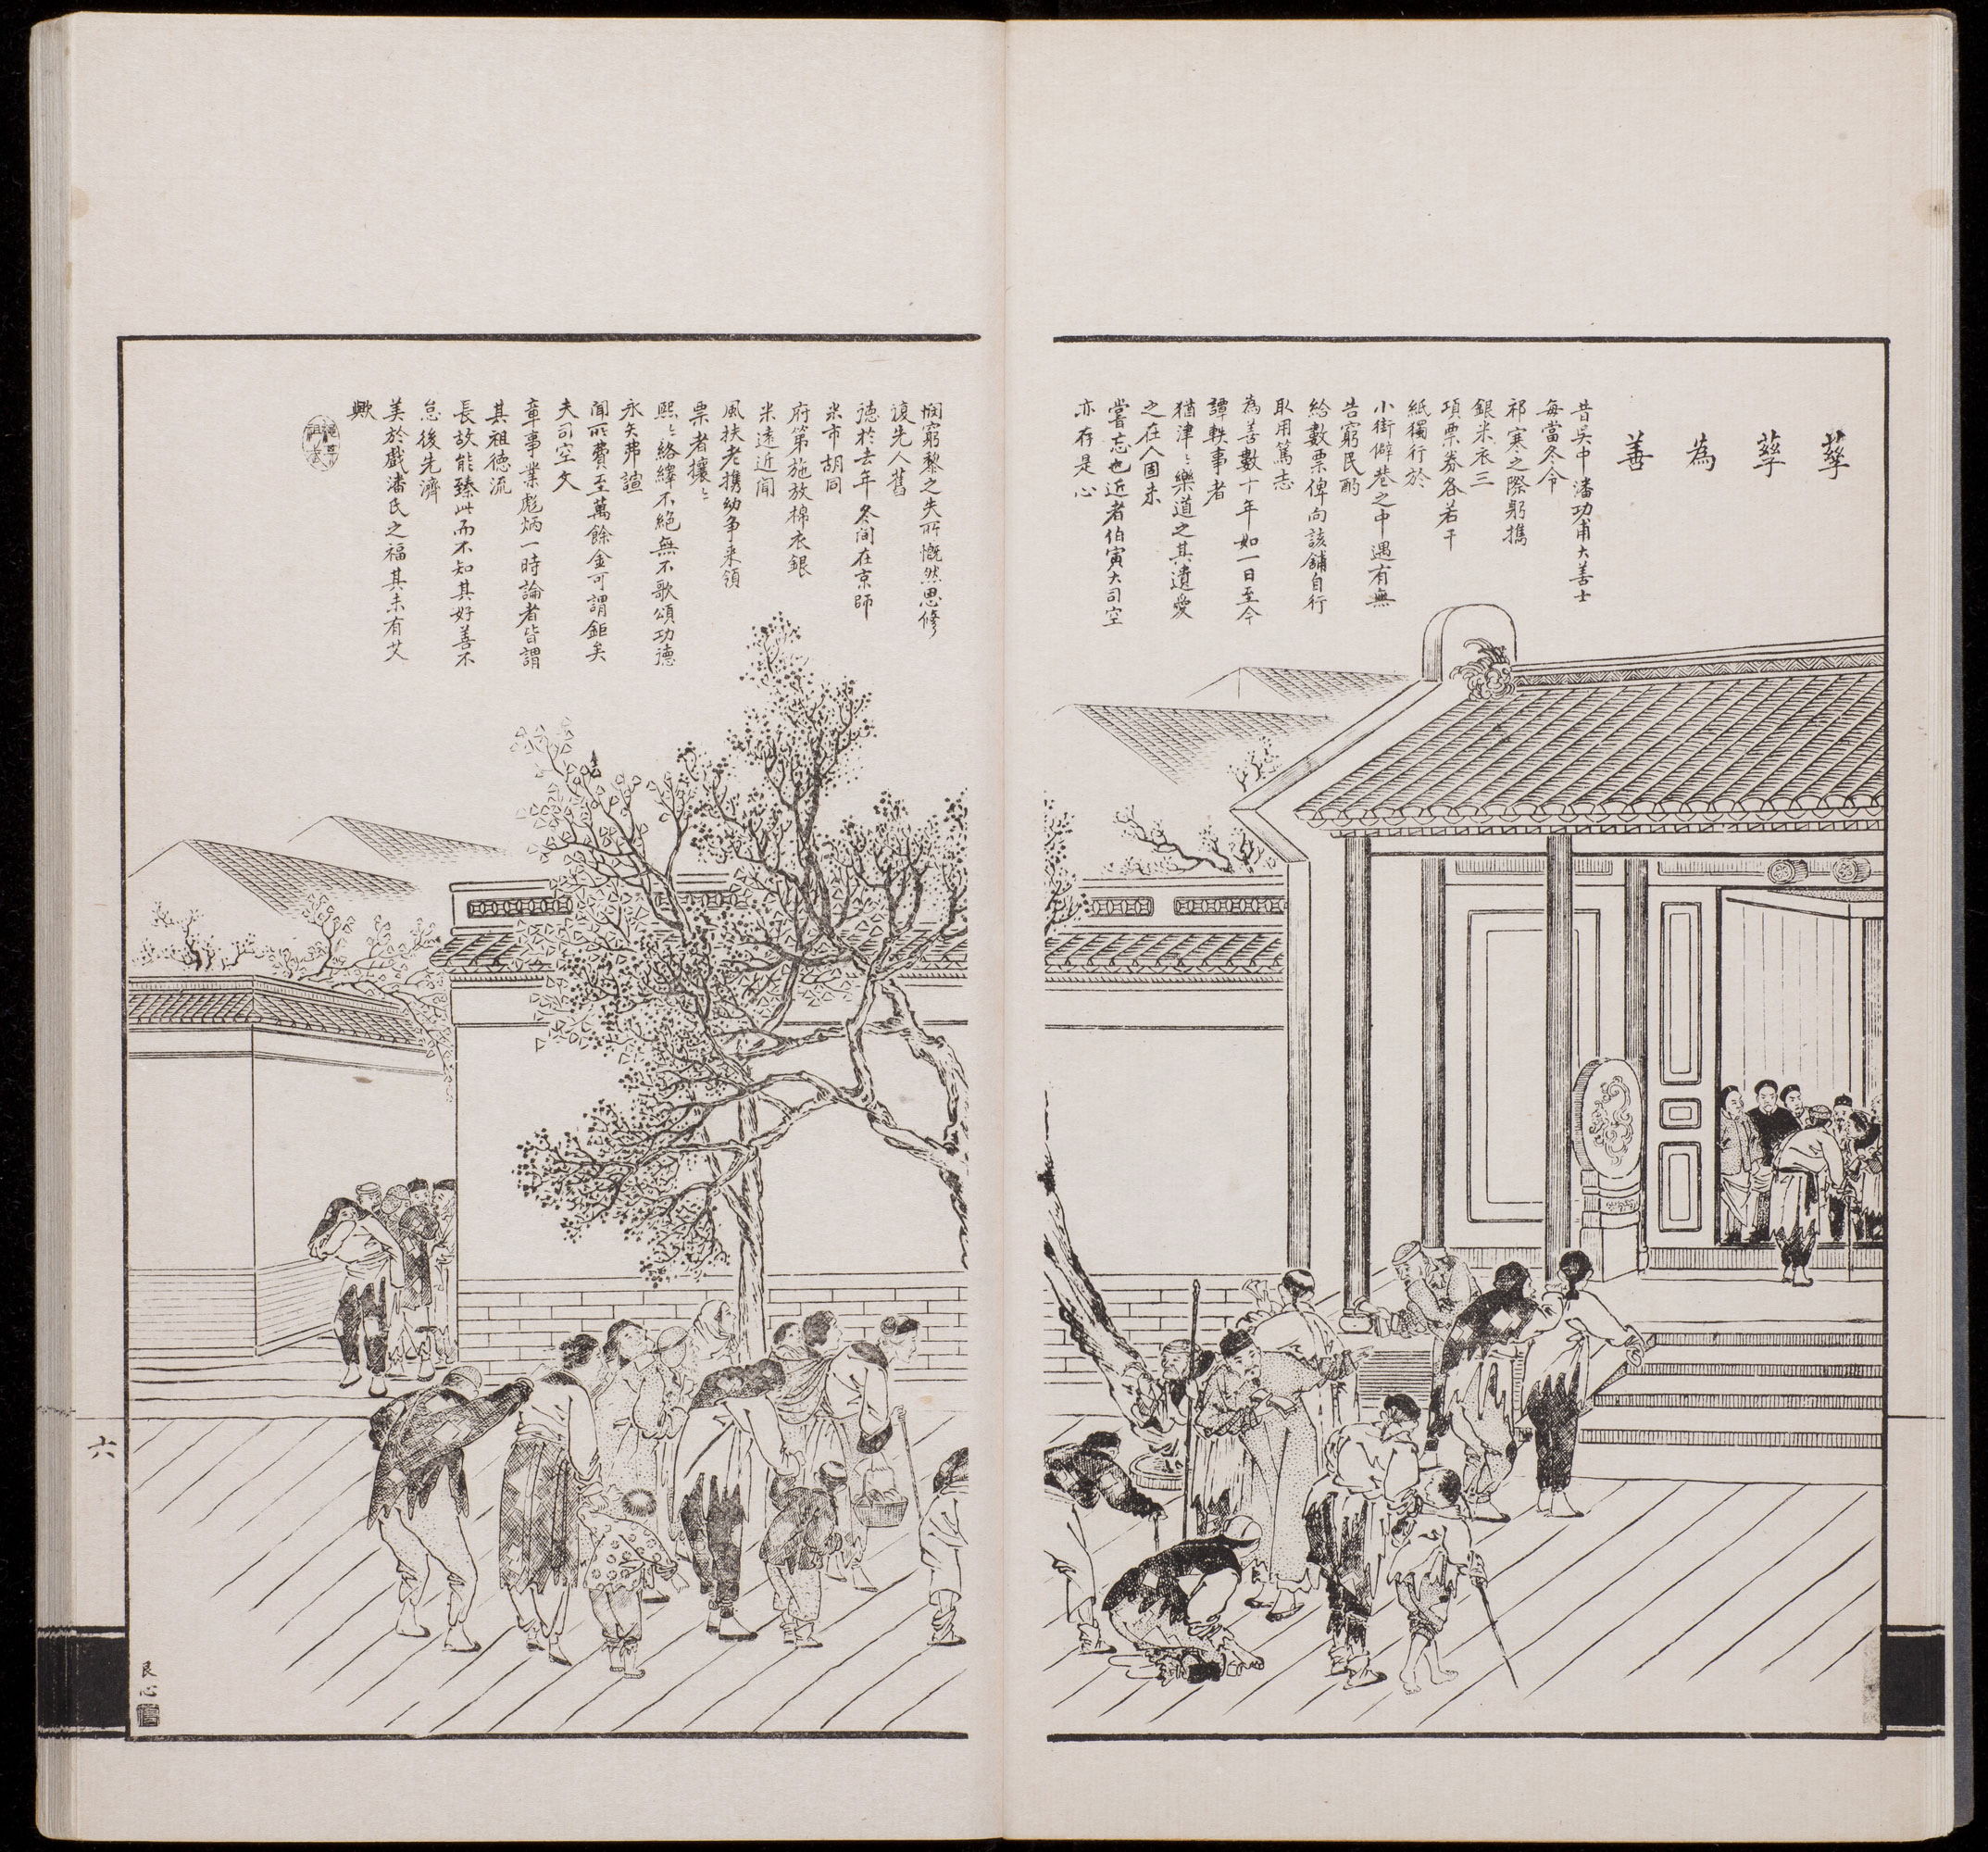 孳孳為善
昔吳中潘功甫大善士
每當冬令
祁寒之際躬攜
銀米衣三
項票券各若干
紙獨行於
小街僻巷之中遇有無
告窮民酌
給數票俾向該鋪自行
取用篤志
為善數十年如一日至今
譚軼事者
猶津〻樂道之其遺愛
之在人固未
嘗忘也近者伯寅大司空
亦存是心
憫窮黎之失所慨然思修
復先人舊
德於去年冬間在京師
米市胡同
府第施放棉衣銀
米遠近聞
風扶老攜幼爭來領
票者攘〻
熙〻絡繹不絕無不歌頌功德
永矢弗諼
聞所費至萬餘金可謂鉅矣
夫司空文
章事業彪炳一時論者皆謂
其祖德流
長故能臻此而不知其好善不
怠後先濟
美於戲潘氏之福其未有艾
歟
六
艮心